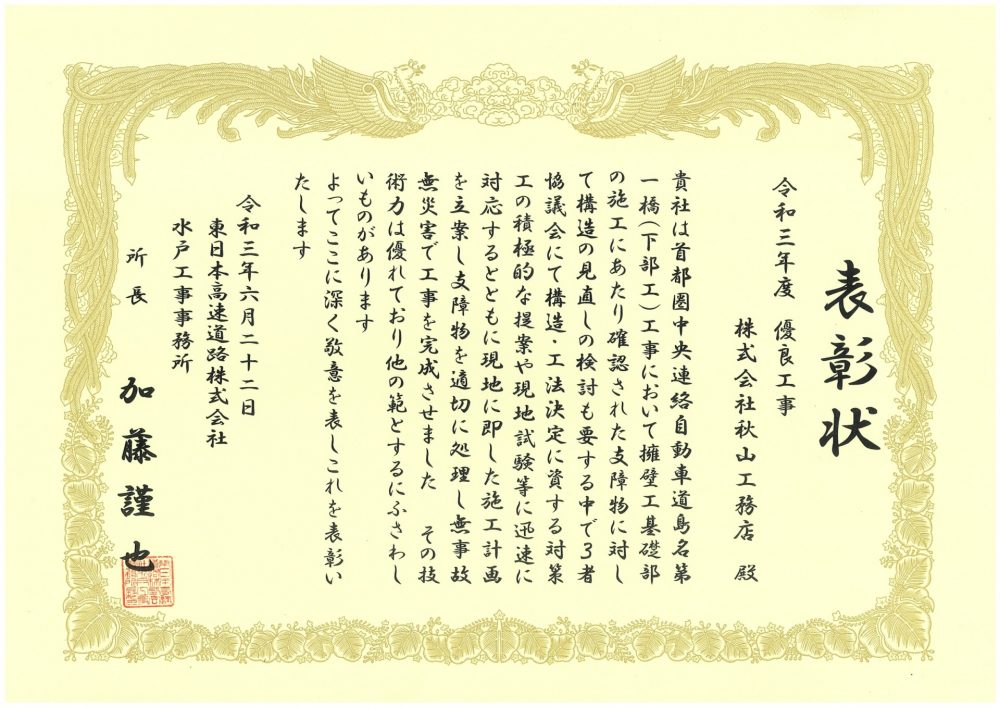 表彰状
令和三年度　優良工事
株式会社秋山工務店　殿
貴社は首都圏中央連絡自動車道島名第
一橋(下部工)工事において擁壁工基礎部
の施工にあたり確認された支障物に対し
て構造の見直しの検討も要する中で3者
協議会にて構造・工法決定に資する対策
工の積極的な提案や現地試験等に迅速に
対応するとともに現地に即した施工計画
を立案し支障物を適切に処理し無事故
無災害で工事を完成させました　その技
術力は優れており他の範とするにふさわし
いものがあります
よってここに深く敬意を表しこれを表彰い
たします
令和三年六月二十二日
東日本高速道路株式会社
水戸工事事務所
所長　加藤謹也